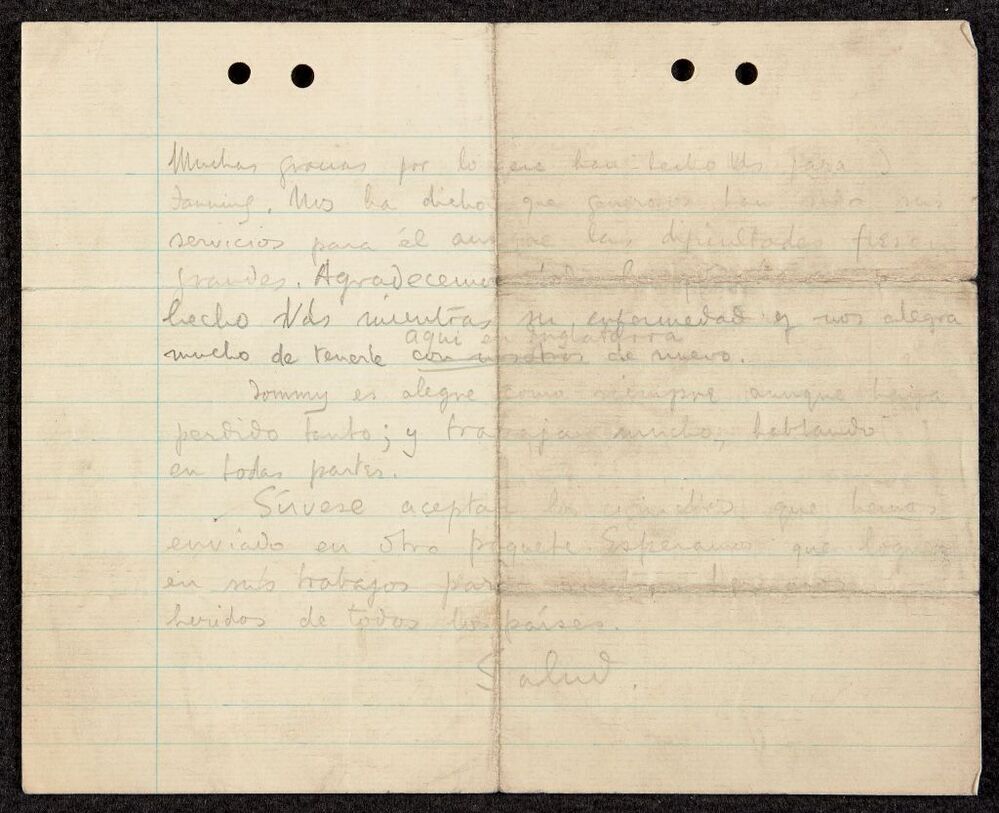 Muchas gracias por lo que han hecho Uds para J
Fanning. Nos ha dicho que generosos han sido sus
servicios para él aunque las dificultades fuesen
grandes. Agradecemos todo lo que
hecho Vds mientras su enfermedad y nos alegra
aquí en Inglaterra
mucho de tenerle con nosotros de nuevo.
Tommy es alegre como siempre aunque haya
perdido tanto; y trabaja mucho, hablando
en todas partes.
Sírvese aceptar los que hemos
enviado en otro paquete. Esperamos que logren
en sus trabajos para nuestros hermanos
heridos de todos los países.
Salud.